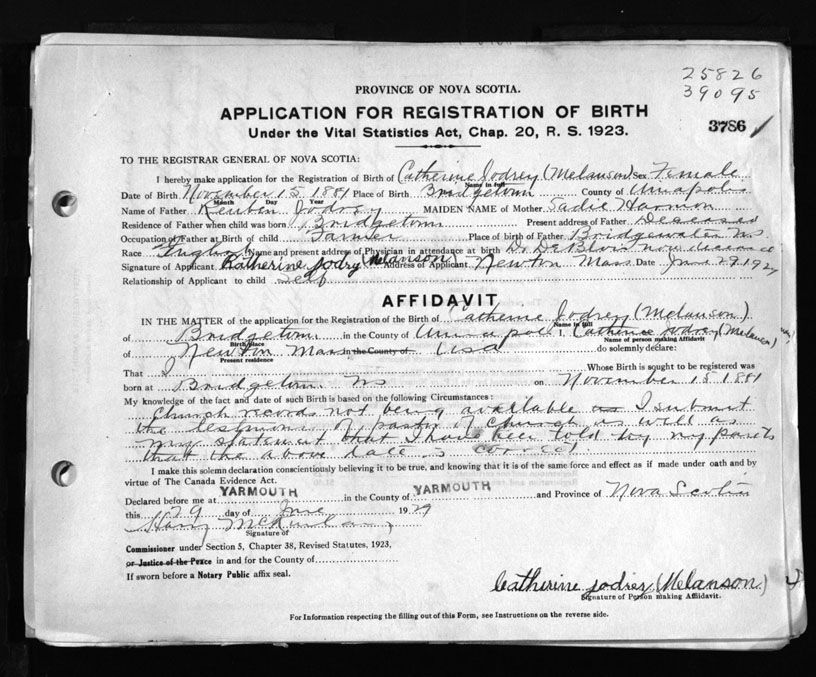 25826
39095
PROVINCE OF NOVA SCOTIA.
APPLICATION FOR REGISTRATION OF BIRTH
3786
Under the Vital Statistics Act, Chap. 20, R. S. 1923.
TO THE REGISTRAR GENERAL OF NOVA SCOTIA:
I hereby make application for the Registration of Birth of Catherine Jodrey (Melanson) Sex Female
Name in full
Date of Birth November 15 1881 Place of Birth Bridgetown County of Annapolis
Month Day Year
Name of Father Reuben Jodrey MAIDEN NAME of Mother Sadie Harmon
Residence of Father when child was born Bridgetown Present address of Father Deseased
Occupation of Father at Birth of child Farmer Place of birth of Father Bridgewater Ns.
Race English Name and present address of Physician in attendance at birth Dr. De Blois now
Signature of Applicant Katherine Jodry (Melanson) Address of Applicant Newton Mass Date June 29 1929
Relationship of Applicant to child self
AFFIDAVIT
IN THE MATTER of the application for the Registration of the Birth of Catherine Jodrey (Melancon)
Name in full
of Bridgetown in the County of I, Catherine Jodrey (Melanson)
Birth place Name of person making Affidavit
of Newton Mass in the County of Usa do solemnly declare:
Present residence
That I Whose Birth is sought to be registered was
born at Bridgetown Ns on November 15 1881
My knowledge of the fact and date of such Birth is based on the following Circumstances:
Church records not being available as I submit
the of of Church as well as
my statement that I have been told by my parents
that the above date is correct
I make this solemn declaration conscientiously believing it to be true, and knowing that it is of the same force and effect as if made under oath and by
virtue of The Canada Evidence Act.
Declared before me at YARMOUTH in the County of YARMOUTH and Province of Nova Scotia
this 29 day of June 1929
Harry
Signature of
Commissioner under Section 5, Chapter 38, Revised Statutes, 1923,
or Justice of the Peace in and for the County of
If sworn before a Notary Public affix seal.
Catherine Jodrey (Melanson)
Signature of Person making Affidavit.
For Information respecting the filling out of this Form, see Instructions on the reverse side.